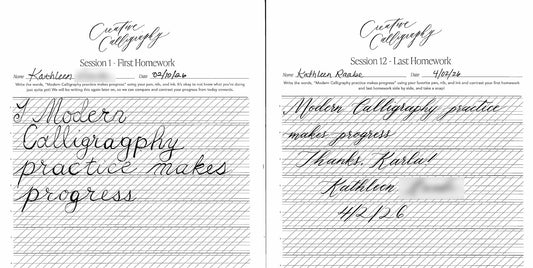 Creative
Calligraphy
Session 1 - First Homework
Name Kathleen Date 02/10/26
Write the words, "Modern Calligraphy practice makes progress" using your pen, nib, and ink. It's okay to not know what you're doing
just write pls! We will be writing this again later on, so we can compare and contrast your progress from today onwards.
Modern
Calligragphy
practice makes
progress
Creative
Calligraphy
Session 12 - Last Homework
Name Kathleen Raabe Date 4/02/26
Write the words, "Modern Calligraphy practice makes progress" using your favorite pen, nib, and ink and contrast your first homework
and last homework side by side, and take a snap!
Modern Calligraphy practice
makes progress
Thanks, Karla!
Kathleen
4/2/26